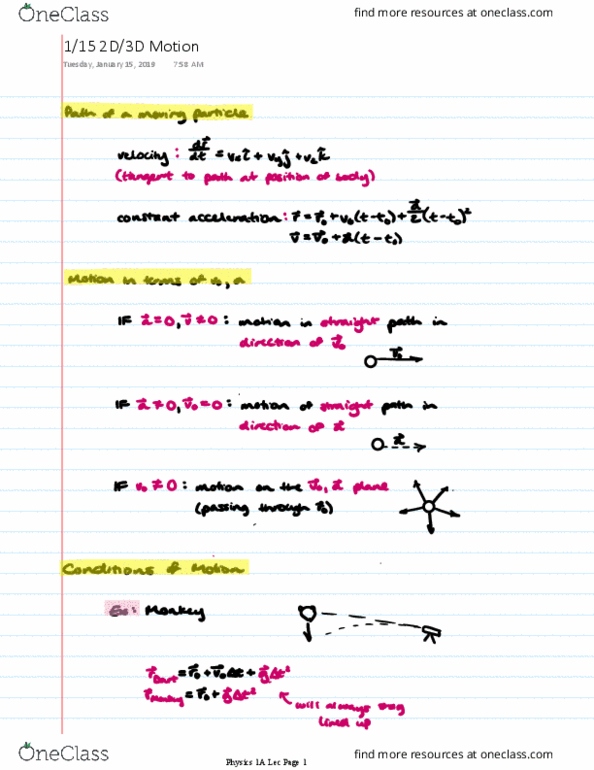 OneClass
find more resources at oneclass.com
1/15 2D/3D Motion
Tuesday, January 15, 2019 7:58 AM
Path of a moving particle
velocity: dr⃗/dt = vₓî + vᵧĵ + v_z k̂
(tangent to path at position of body)
constant acceleration: r⃗ = r⃗₀ + v₀(t-t₀) + a⃗/2(t-t₀)²
v⃗ = v⃗₀ + a(t-t₀)
Motion in terms of v₀, a
IF a⃗ = 0, v⃗ ≠ 0: motion in straight path in
direction of v⃗₀
v⃗₀
IF a⃗ ≠ 0, v⃗₀ = 0: motion of straight path in
direction of a⃗
a⃗
IF v₀ ≠ 0: motion on the v⃗₀, a⃗ plane
(passing through r⃗₀)
Conditions of Motion
Ex: Monkey
r⃗Dart = r⃗₀ + v⃗₀Δt + g⃗/2Δt²
r⃗Monkey = r⃗₀ + g⃗/2Δt²
will always
lined up
OneClass
find more resources at oneclass.com
Physics 1A Lec Page 1